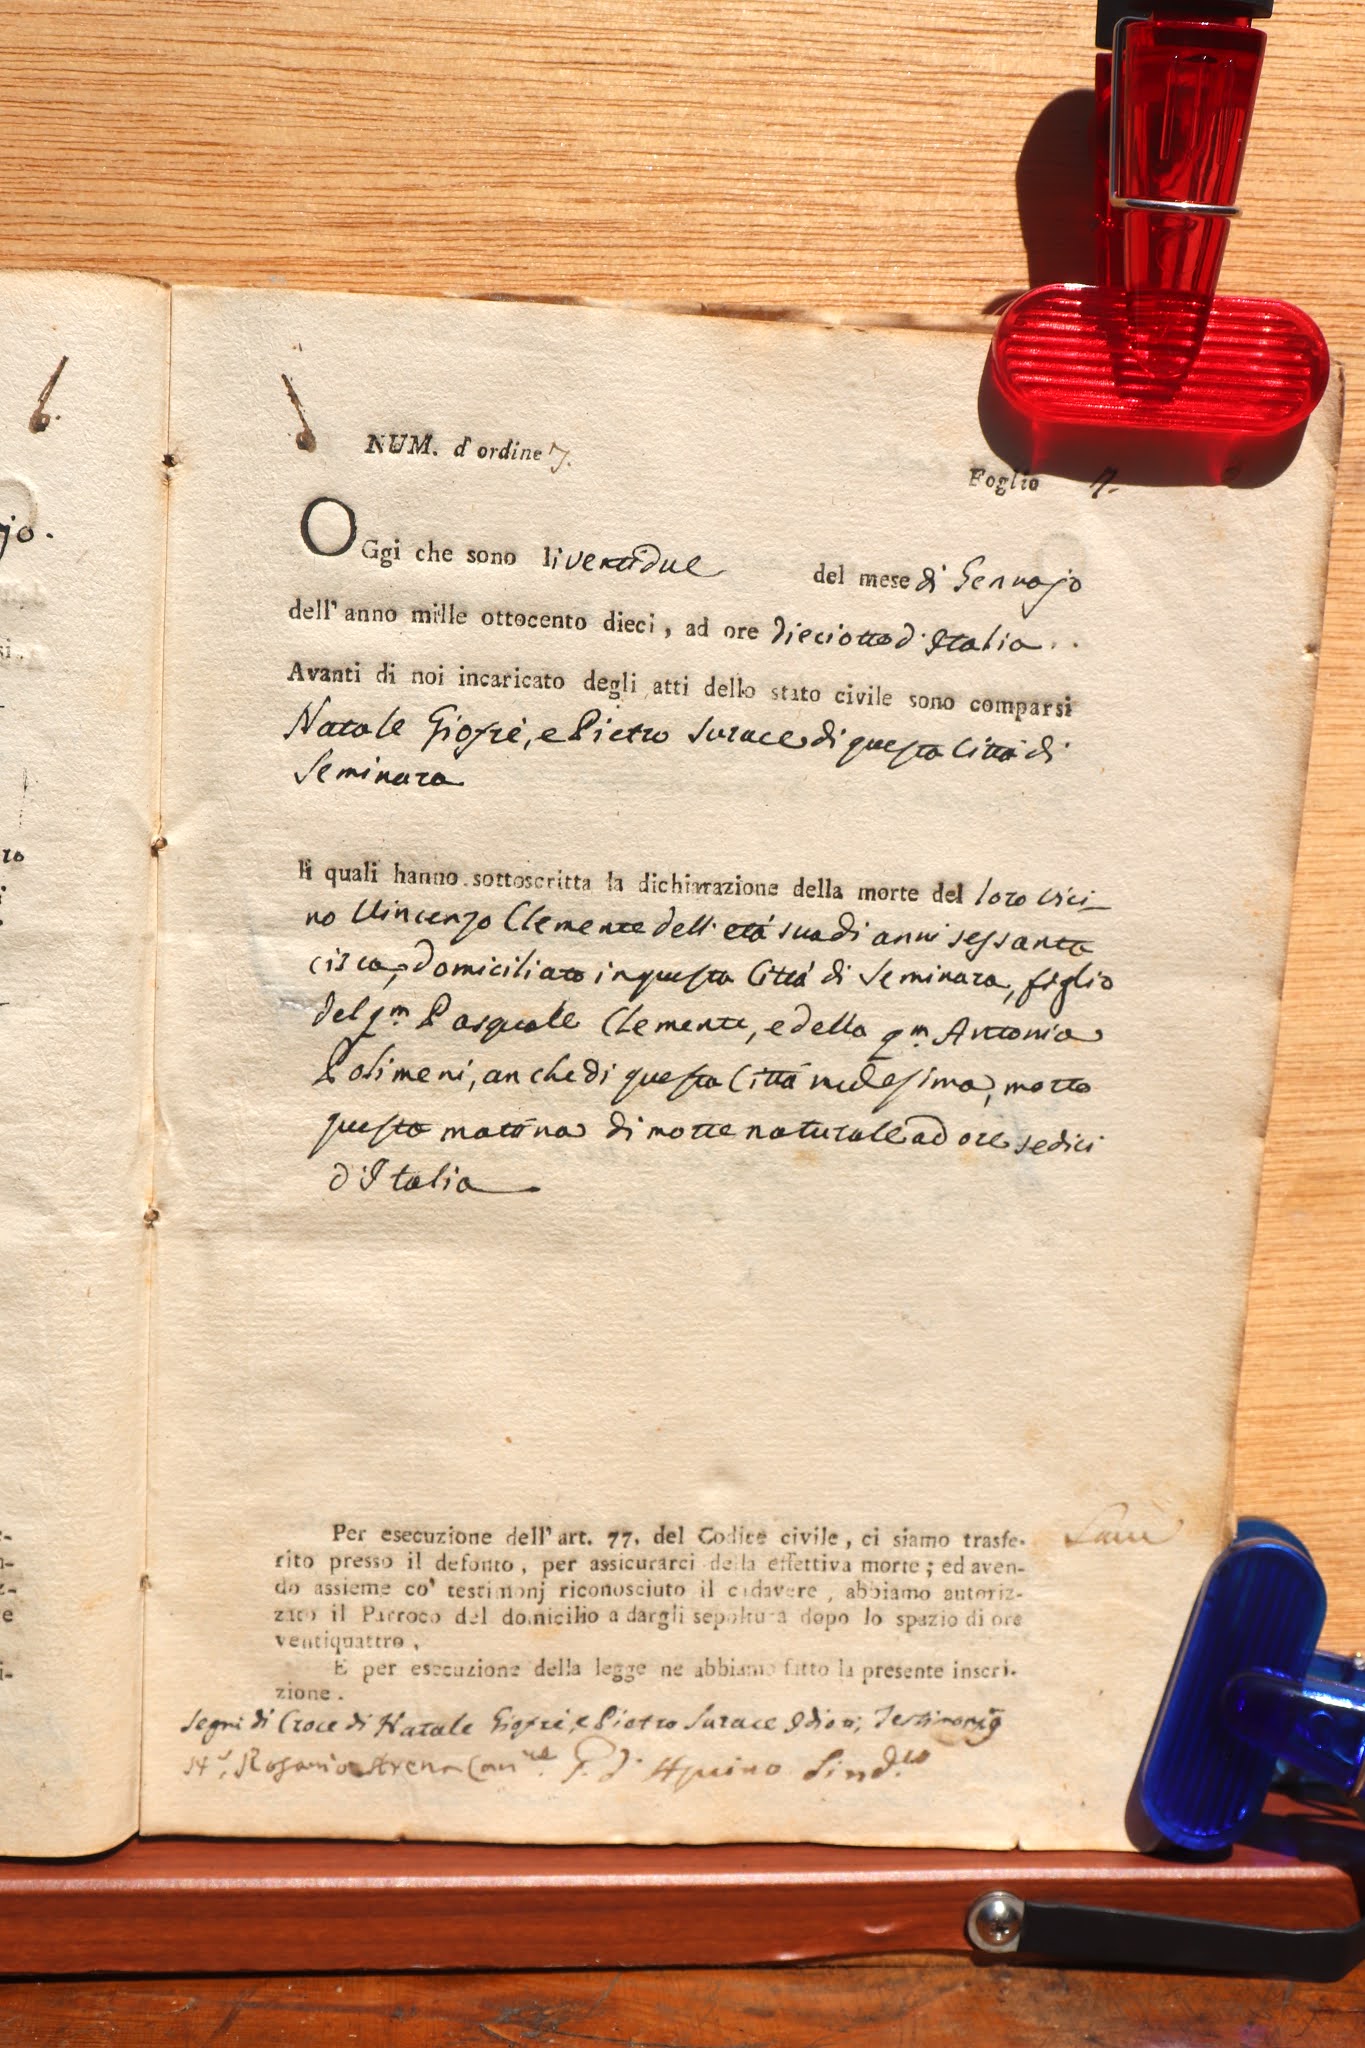 NUM. d'ordine 7.
Foglio 7.
OGgi che sono li ventidue del mese di Gennajo
dell'anno mille ottocento dieci, ad ore dieciotto d'Italia . .
Avanti di noi incaricato degli atti dello stato civile sono comparsi
Natale Giofrè, e Pietro Surace di questa Città di
Seminara
li quali hanno sottoscritta la dichiarazione della morte del loro vici-
no Vincenzo Clemente dell'età sua di anni sessanta
circa, domiciliato in questa Città di Seminara, figlio
del qm Pasquale Clemente, e della qm Antonia
Polimeni, anche di questa Città medesima, morto
questa matina di morte naturale ad ore sedici
d'Italia
Per esecuzione dell'art. 77. del Codice civile, ci siamo trasfe-
rito presso il defonto, per assicurarci della effettiva morte; ed aven-
do assieme co' testimonj riconosciuto il cadavere, abbiamo autoriz-
zato il Parroco del domicilio a dargli sepoltura dopo lo spazio di ore
ventiquattro.
E per esecuzione della legge ne abbiamo fatto la presente inscri-
zione.
Segni di Croce di Natale Giofrè, e Pietro Surace Testimonj
Rosario Arena P. d'Aquino Sind.co
jo.